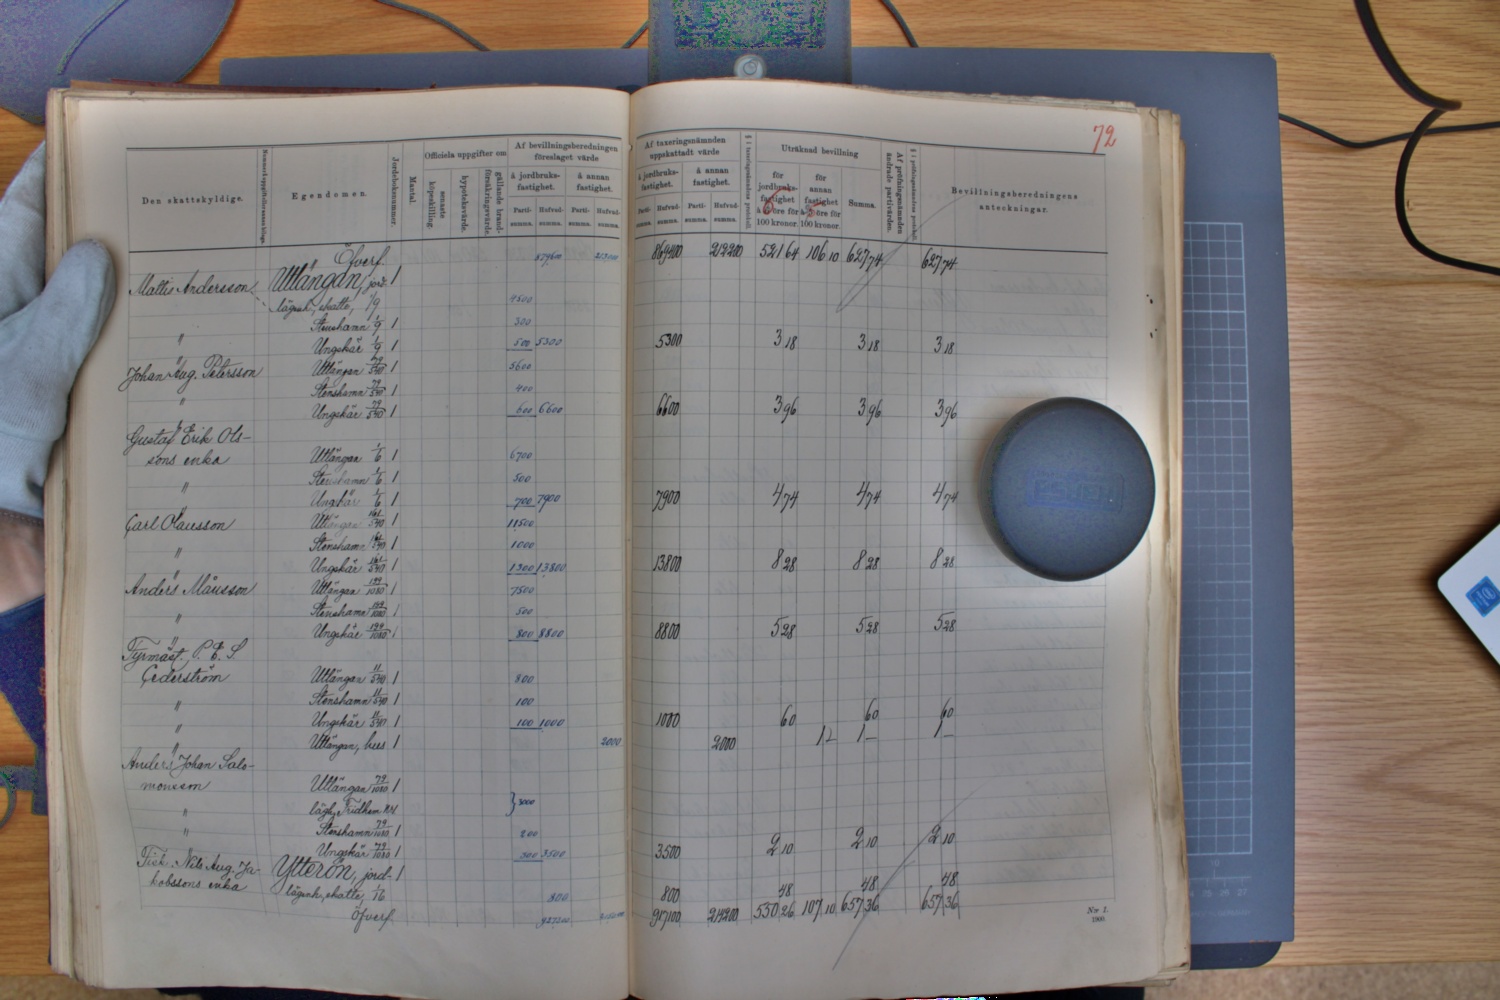 72
Den skattskyldige.
Egendomen.
Jordeboksnummer.
Mantal.
Officiela uppgifter om
senaste köpeskilling.
hypoteksvärde.
gällande brandförsäkringsvärde.
Af bevillningsberedningen föreslaget värde
å jordbruksfastighet.
å annan fastighet.
Partisumma.
Hufvudsumma.
Af taxeringsnämnden uppskattadt värde
å jordbruksfastighet.
å annan fastighet.
Uträknad bevillning
för jordbruksfastighet
för annan fastighet
100 kronor.
100 kronor.
Summa.
Af pröfningsnämnden ändrade partivärden.
Bevillningsberedningens anteckningar.
Öfverf. 869400 212200 521 64 106 10 627 74 627 74
Mattis Andersson Utlängan, jord- 1
lägenh., skatte, 1/9 4500
Stenshamn 1/9 1 300
" Ungskär 1/9 1 500 5300 5300 3 18 3 18 3 18
Johan Aug. Petersson Utlängan 79/540 1 5600
Stenshamn 79/540 1 400
" Ungskär 79/540 1 600 6600 6600 3 96 3 96 3 96
Gustaf Erik Ols-
sons enka Utlängan 1/6 1 6700
Stenshamn 1/6 1 500
" Ungskär 1/6 1 700 7900 7900 4 74 4 74 4 74
Carl Olausson Utlängan 161/540 1 11500
" Stenshamn 161/540 1 1000
Ungskär 161/540 1 1300 13800 13800 8 28 8 28 8 28
Anders Månsson Utlängan 199/1080 1 7500
Stenshamn 199/1080 1 500
" Ungskär 199/1080 1 800 8800 8800 5 28 5 28 5 28
Fyrmäst. P. E. S.
Cederström Utlängan 11/540 1 800
Stenshamn 11/540 1 100
" Ungskär 11/540 1 100 1000 1000 60 60 60
" Utlängan, hus 1 2000 2000 1 — 1 — 1 —
Anders Johan Salo-
monsson Utlängan 79/1080 1
" lägh. Fridhem 3000
" Stenshamn 79/1080 1 200
" Ungskär 79/1080 1 300 3500 3500 2 10 2 10 2 10
Fisk. Nils Aug. Ja- Ytterön, jord- 1
kobssons enka lägenh., skatte, 1/16 800 800 48 48 48
Öfverf. 917100 214200 550 26 107 10 657 36 657 36
N:r 1.
1900.